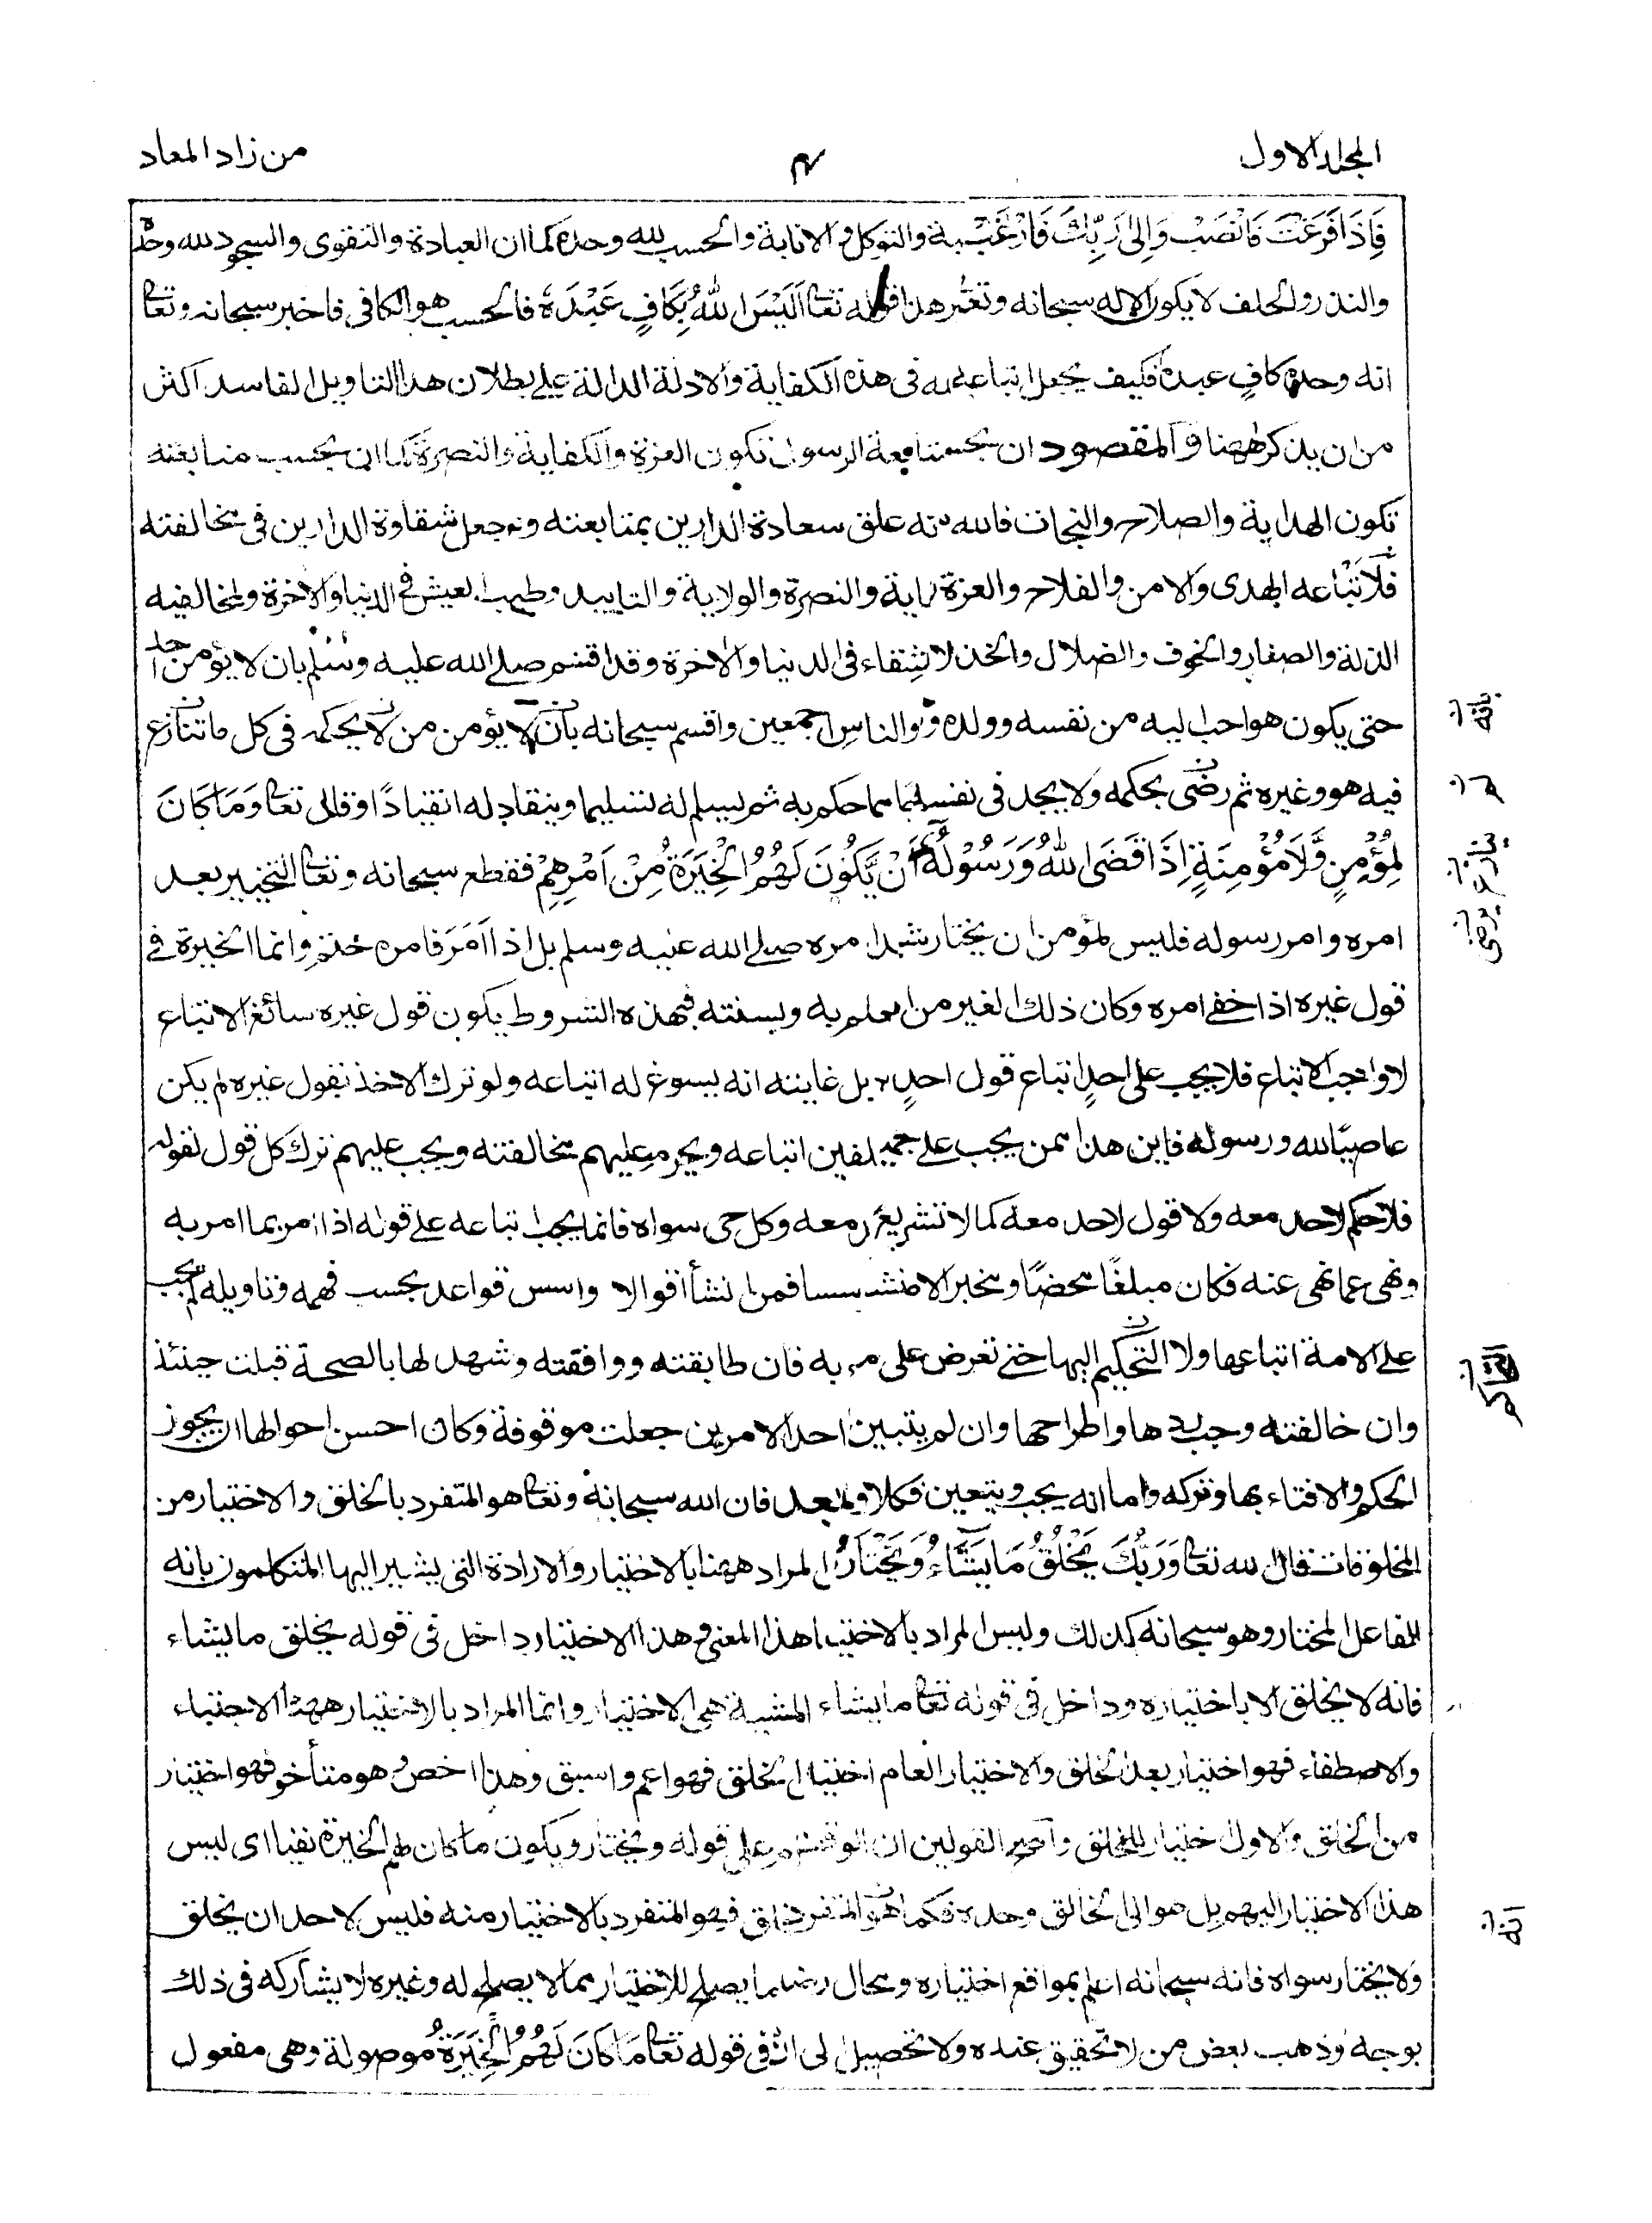 المجلد الاول
٤
من زاد المعاد
فَاِذَا فَرَغْتَ فَانْصَبْ وَاِلىٰ رَبِّكَ فَارْغَبْ والتوكل والانابة والحسب لله وحده كما ان العبادة والتقوى والسجود لله وحده
والنذر والحلف لا يكون الا له سبحانه وتعالى ونظير هذا قوله تعالى اَلَيْسَ اللهُ بِكَافٍ عَبْدَهٗ فالحسب هو الكافى فاخبر سبحانه وتعالى
انه وحده كافٍ عبده فكيف يجعل اتباعه معه فى هذه الكفاية والادلة الدالة على بطلان هذا التاويل الفاسد اكثر
من ان يذكر ههنا والمقصود ان بحسب متابعة الرسول تكون العزة والكفاية والنصرة كما ان بحسب متابعته
تكون الهداية والصلاح والنجات فالله سبحانه علق سعادة الدارين بمتابعته وجعل شقاوة الدارين فى مخالفته
فلاتباعه الهدى والامن والفلاح والعزة والكفاية والنصرة والولاية والتاييد وطيب العيش فى الدنيا والاخرة ولمخالفيه
الذلة والصغار والخوف والضلال والخذلان والشقاء فى الدنيا والاخرة وقد اقسم صلى الله عليه وسلم بان لا يؤمن احد
حتى يكون هو احب اليه من نفسه وولده ووالده والناس اجمعين واقسم سبحانه بان لا يؤمن من لا يحكمه فى كل ما تنازع
فيه هو وغيره ثم رضى بحكمه ولا يجد فى نفسه حرجا مما حكم به ثم يسلم له تسليما وينقاد له انقيادًا وقال تعالى وَمَا كَانَ
لِمُؤْمِنٍ وَّلَا مُؤْمِنَةٍ اِذَا قَضَى اللهُ وَرَسُوْلُهٗ اَمْرًا اَنْ يَّكُوْنَ لَهُمُ الْخِيَرَةُ مِنْ اَمْرِهِمْ فقطع سبحانه وتعالى التخيير بعد
امره وامر رسوله فليس لمؤمن ان يختار شيئا بعد امره صلى الله عليه وسلم بل اذا اَمَرَ فامره حتم وانما الخيرة فى
قول غيره اذا خفى امره وكان ذلك الغير من اهل العلم به وبسنته فبهذه الشروط يكون قول غيره سائغ الاتباع
لا واجب الاتباع فلا يجب على احدٍ اتباع قول احدٍ سواه بل غايته انه يسوغ له اتباعه ولو ترك الاخذ بقول غيره لم يكن
عاصيًا لله ورسوله فاين هذا ممن يجب على جميع المكلفين اتباعه ويحرم عليهم مخالفته ويجب عليهم ترك كل قول لقوله
فلا حكم لاحد معه ولا قول لاحد معه كما لا تشريع لاحد معه وكل من سواه فانما يجب اتباعه على قوله اذا امر بما امر به
ونهى عما نهى عنه فكان مبلغًا محضًا ومخبرا لا منشئا ومؤسسا فمن انشأ اقوالا واسس قواعد بحسب فهمه وتاويله لم يجب
على الامة اتباعها ولا التحكيم اليها حتى تعرض على ما جاء به فان طابقته ووافقته وشهد لها بالصحة قبلت حينئذ
وان خالفته وجب ردها واطراحها وان لم يتبين احد الامرين جعلت موقوفة وكان احسن احوالها ان يجوز
الحكم والافتاء بها وتركه واما انه يجب ويتعين فكلا ولما بعد فان الله سبحانه وتعالى هو المتفرد بالخلق والاختيار من
المخلوقات قال الله تعالى وَرَبُّكَ يَخْلُقُ مَا يَشَآءُ وَيَخْتَارُ المراد ههنا بالاختيار والارادة التى يشير اليها المتكلمون بانه
الفاعل المختار وهو سبحانه كذلك وليس المراد بالاختيار ههنا هذا المعنى وهذا الاختيار داخل فى قوله يخلق ما يشاء
فانه لا يخلق الا باختياره وداخل فى قوله تعالى ما يشاء المشية هى الاختيار وانما المراد بالاختيار ههنا الاجتباء
والاصطفاء فهو اختيار بعد الخلق والاختيار العام اختيار قبل الخلق فهو اعم واسبق وهذا اخص وهو متأخر فهو اختيار
من الخلق والاول اختيار للخلق واصح القولين ان الوقف التام على قوله ويختار ويكون ما كان لهم الخيرة نفيا اى ليس
هذا الاختيار اليهم بل هو الى الخالق وحده فكما انه هو المتفرد بالخلق فهو المتفرد بالاختيار منه فليس لاحد ان يخلق
ولا يختار سواه فانه سبحانه اعلم بمواقع اختياره ومحال رضاه وما يصلح للاختيار مما لا يصلح له وغيره لا يشاركه فى ذلك
بوجه وذهب بعض من لا تحقيق عنده ولا تحصيل الى ان ما فى قوله تعالى مَا كَانَ لَهُمُ الْخِيَرَةُ موصولة وهى مفعول
بانه
يتنازع
يرضى
التحاكم
انه